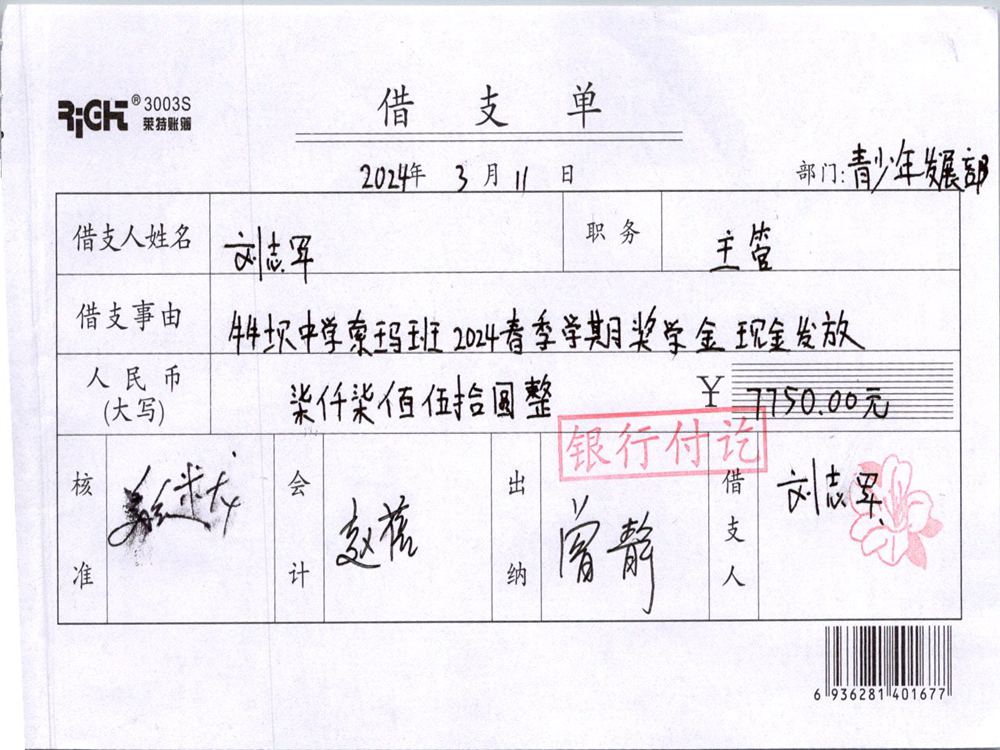 RiGHT® 3003S
莱特账簿
借支单
2024年 3月 11日
部门:青少年发展部
借支人姓名 刘志军 职务 主管
借支事由 牛坝中学索玛班2024春季学期奖学金现金发放
人民币(大写) 柒仟柒佰伍拾圆整 ¥ 7750.00元
银行付讫
核准 会计 赵蓓 出纳 曾静 借支人 刘志军
6 936281 401677